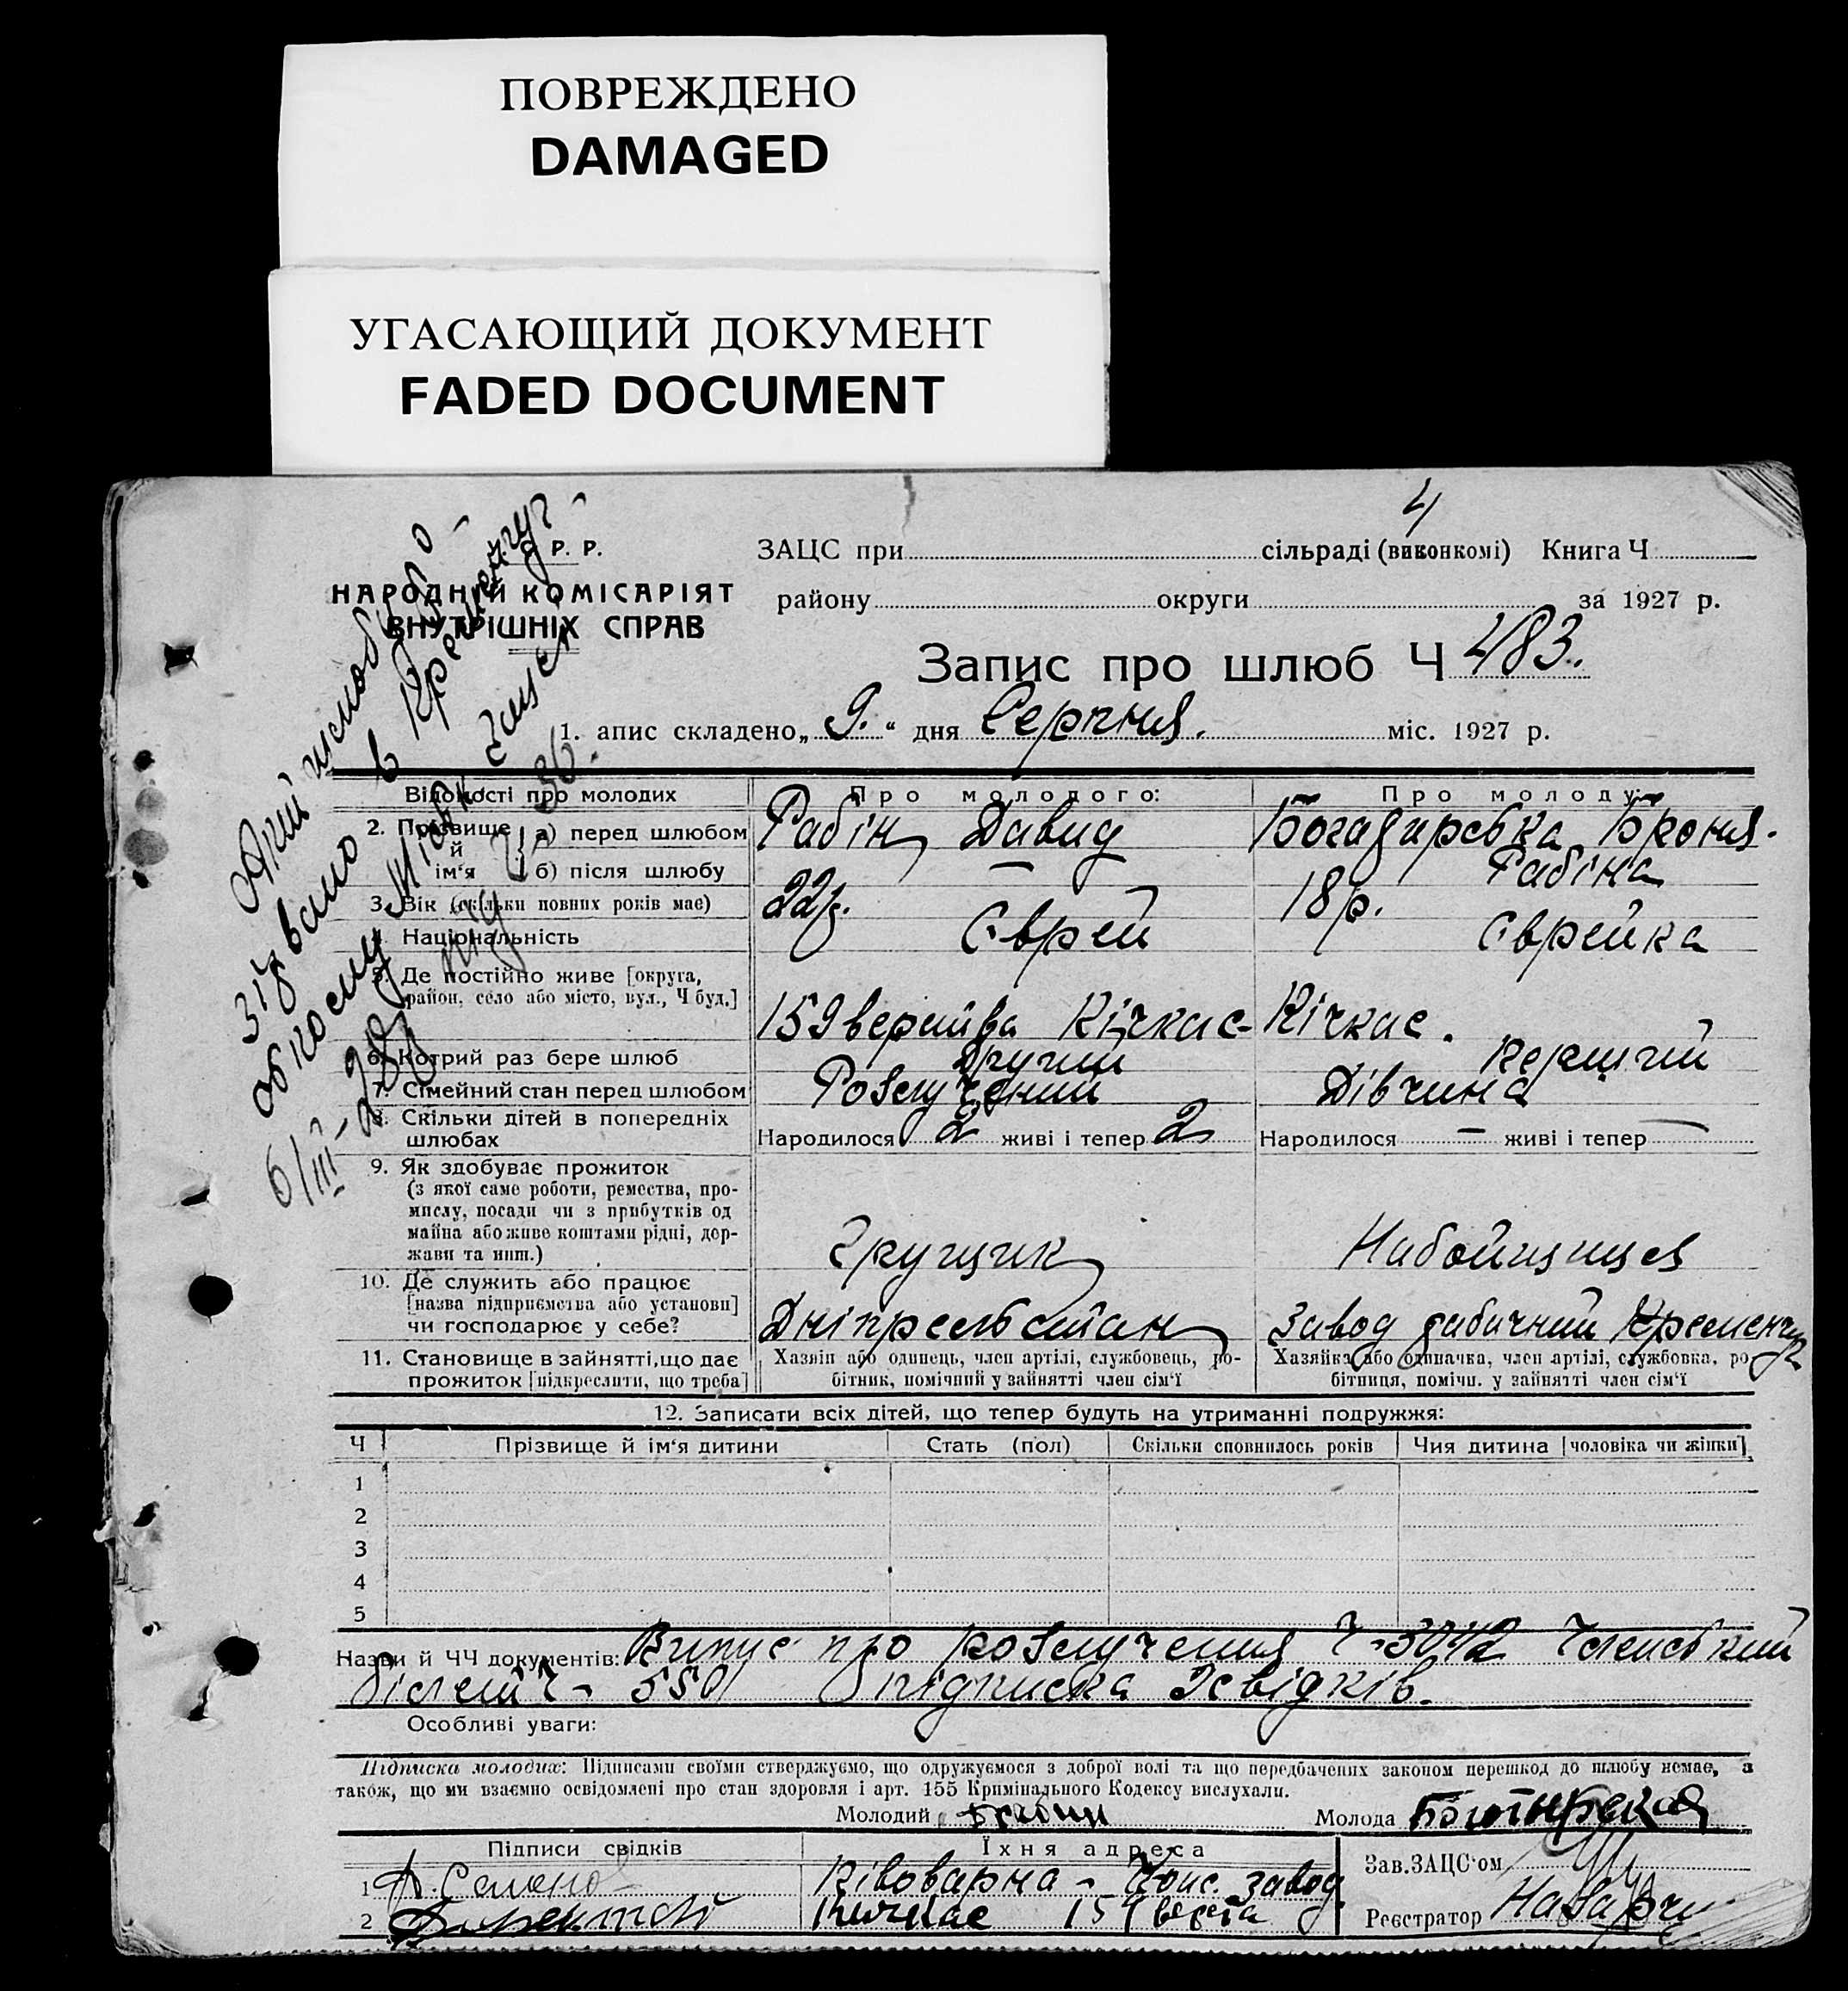 ПОВРЕЖДЕНО
DAMAGED
УГАСАЮЩИЙ ДОКУМЕНТ
FADED DOCUMENT
4
Р. Р.
ЗАЦС при сільраді (виконкомі) Книга Ч
НАРОДНІЙ КОМІСАРІЯТ
ВНУТРІШНІХ СПРАВ
району округи за 1927 р.
Запис про шлюб Ч 483.
1. апис складено „ 9. “ дня Серпня. міс. 1927 р.
в Кременчуг
6/III-28
Відомості про молодих Про молодого: Про молоду:
2. Прізвище й ім'я а) перед шлюбом Рабін Давид Богадирська Броня.
б) після шлюбу — Рабіна
3. Вік (скільки повних років має) 22р. 18р.
Національність Єврей Єврейка
5. Де постійно живе [округа,
район, село або місто, вул., Ч буд.] 159 верства Кічкас Кічкас.
6. Котрий раз бере шлюб Другий Перший
7. Сімейний стан перед шлюбом Розлучений Дівчина
8. Скільки дітей в попередніх
шлюбах Народилося 2 живі і тепер 2 Народилося — живі і тепер —
9. Як здобуває прожиток
(з якої саме роботи, ремества, про-
мислу, посади чи з прибутків од
майна або живе коштами рідні, дер-
жави та инш.) Грущик Набойщиця
10. Де служить або працює
[назва підприємства або установи]
чи господарює у себе? Дніпрельстан Завод табачний Кременчуг
11. Становище в зайнятті, що дає
прожиток [підкреслити, що треба]
Хазяін або одинець, член артілі, службовець, ро-
бітник, помічний у зайнятті член сім'ї
Хазяйка або одиначка, член артілі, службовка, ро
бітниця, помічн. у зайнятті член сім'ї
12. Записати всіх дітей, що тепер будуть на утриманні подружжя:
Ч Прізвище й ім'я дитини Стать (пол) Скільки сповнилось років Чия дитина [чоловіка чи жінки]
1
2
3
4
5
Назви й ЧЧ документів: Випис про розлучення Ч-3042 Членський
білет Ч- 550 підписка 2 свідків.
Особливі уваги:
Підписка молодих: Підписами своїми стверджуємо, що одружуємося з доброї волі та що передбачених законом перешкод до шлюбу немає, а
також, що ми взаємно освідомлені про стан здоровля і арт. 155 Кримінального Кодексу вислухали.
Молодий Молода Богатырская
Підписи свідків Їхня адреса Зав.ЗАЦС'ом
1 Півоварна - Конс. завод.
2 Кичкас 159 верста Реєстратор